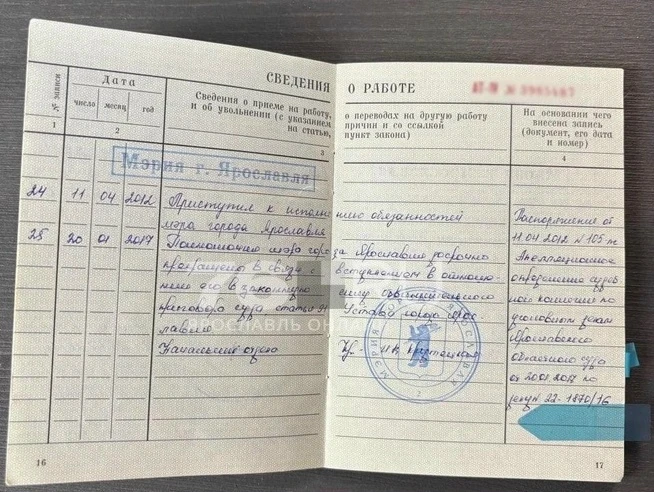 СВЕДЕНИЯ О РАБОТЕ
№ записи
Дата
число месяц год
Сведения о приеме на работу,
и об увольнении (с указанием
на статью,
о переводах на другую работу
причин и со ссылкой
пункт закона)
На основании чего
внесена запись
(документ, его дата
и номер)
1 2 3 4
Мэрия г. Ярославля
24 11 04 2012 Приступил к исполнению обязанностей
мэра города Ярославля
Распоряжение от
11.04.2012 №105-
25 20 01 2017 Полномочия мэра города Ярославля досрочно
прекращено в связи с вступлением в отношении
него в законную силу обвинительного
приговора суда статья 91 Устава города Ярославля
Начальник отдела
Апелляционное
определение судебной
коллегии по
уголовным делам
Ярославского
областного суда
от 20.01.2017 по
делу № 22-1870/16
МЭРИЯ ГОРОДА ЯРОСЛАВЛЯ
ЯРОСЛАВЛЬ ОНЛАЙН
16
17